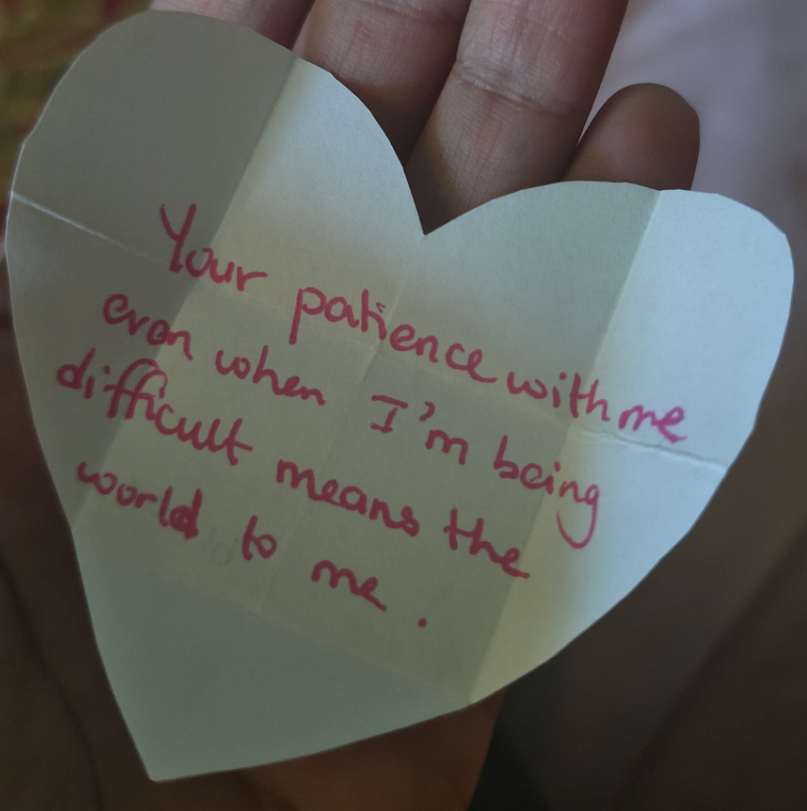 Your patience with me
even when I'm being
difficult means the
world to me.